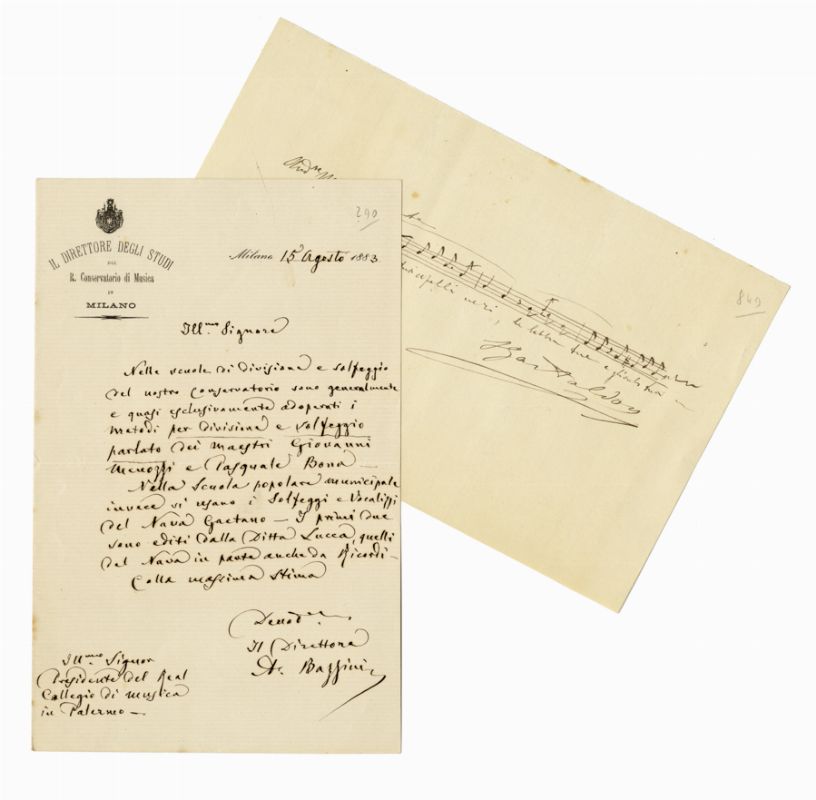 290
IL DIRETTORE DEGLI STUDI
DEL
R. Conservatorio di Musica
IN
MILANO
Milano 15 Agosto 1883
Ill.mo Signore
Nelle scuole di divisione e solfeggio
del nostro Conservatorio sono generalmente
e quasi esclusivamente adoperati i
metodi per divisione e solfeggio
parlato dei maestri Giovanni
Menozzi e Pasquale Bona —
Nella Scuola popolare municipale
invece si usano i Solfeggi e Vocalizzi
del Nava Gaetano — I primi due
sono editi dalla Ditta Lucca, quelli
del Nava in parte anche da Ricordi —
Colla massima Stima
Il Direttore
A. Bazzini
Ill.mo Signor
Presidente del Real
Collegio di musica
in Palermo —
849
capelli neri,